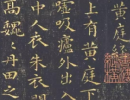 黄庭經
上有黄庭下
噓吸廬外出入
中人衣朱衣
高魏〻丹田之